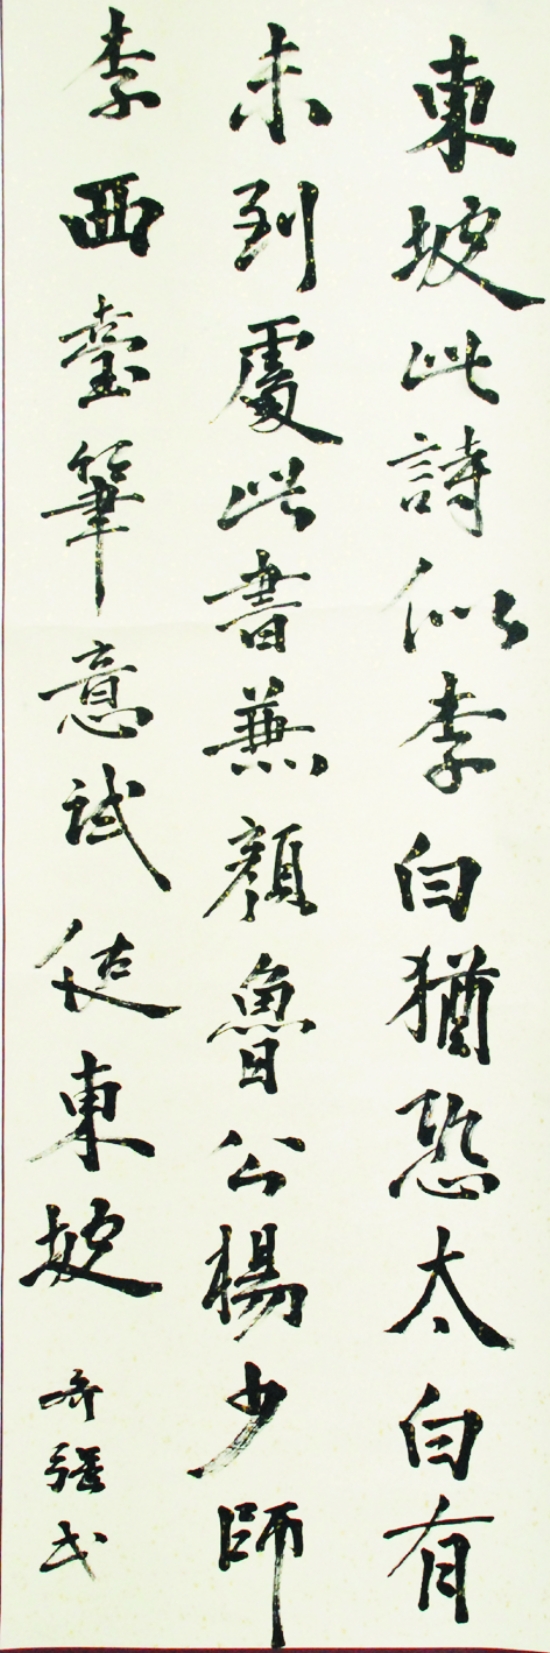 東坡此詩似李白猶恐太白有
未到處此書兼顏魯公楊少師
李西臺筆意試使東坡
齊強武